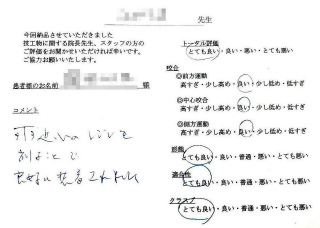 先生
今回納品させていただきました
技工物に関する院長先生、スタッフの方の
ご評価をお聞かせいただければ幸いです。
ご協力お願いいたします。
患者様のお名前
様
コメント
することで
装着
トータル評価
とても良い・良い・悪い・とても悪い
咬合
◎前方運動
高すぎ・少し高め・良い・少し低め・低すぎ
◎中心咬合
高すぎ・少し高め・良い・少し低め・低すぎ
◎側方運動
高すぎ・少し高め・良い・少し低め・低すぎ
形態
とても良い・良い・普通・悪い・とても悪い
適合性
とても良い・良い・普通・悪い・とても悪い
クラスプ
とても良い・良い・普通・悪い・とても悪い